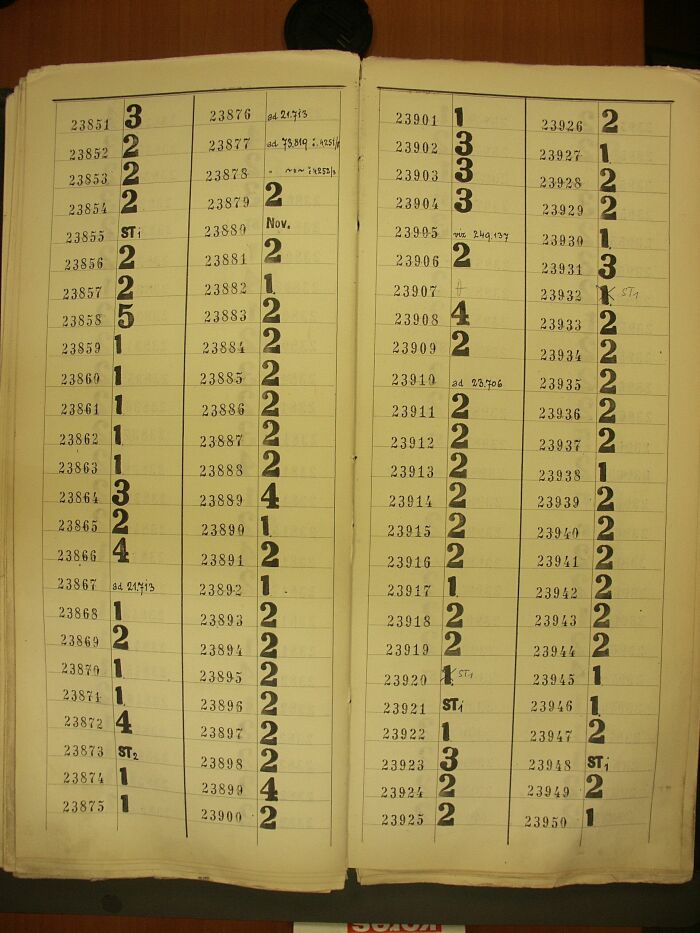 23851 3
23852 2
23853 2
23854 2
23855 ST1
23856 2
23857 2
23858 5
23859 1
23860 1
23861 1
23862 1
23863 1
23864 3
23865 2
23866 4
23867 ad 21.713
23868 1
23869 2
23870 1
23871 1
23872 4
23873 ST2
23874 1
23875 1
23876 ad 21.713
23877 ad 73.819
23878
23879 2
23880 Nov.
23881 2
23882 1
23883 2
23884 2
23885 2
23886 2
23887 2
23888 2
23889 4
23890 1
23891 2
23892 1
23893 2
23894 2
23895 2
23896 2
23897 2
23898 2
23899 4
23900 2
23901 1
23902 3
23903 3
23904 3
23905 viz 249.137
23906 2
23907
23908 4
23909 2
23910 ad 23.706
23911 2
23912 2
23913 2
23914 2
23915 2
23916 2
23917 1
23918 2
23919 2
23920 1 ST1
23921 ST1
23922 1
23923 3
23924 2
23925 2
23926 2
23927 1
23928 2
23929 2
23930 1
23931 3
23932 1 ST1
23933 2
23934 2
23935 2
23936 2
23937 2
23938 1
23939 2
23940 2
23941 2
23942 2
23943 2
23944 2
23945 1
23946 1
23947 2
23948 ST1
23949 2
23950 1